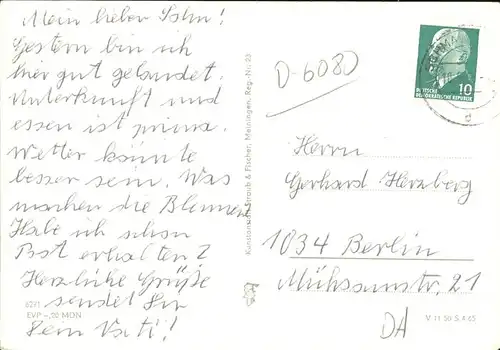 Mein lieber Sohn!
Gestern bin ich
hier gut gelandet.
Unterkunft und
essen ist prima.
Wetter könnte
besser sein. Was
machen die Blumen
Habe ich schon
Post erhalten?
Herzliche Grüße
sendet Dir
Dein Vati!
62/1
EVP –,20 MDN
Kunstanstalt Straub & Fischer, Meiningen, Reg.-Nr. 23
D-6080
10
DEUTSCHE
DEMOKRATISCHE REPUBLIK
d
Herrn
Gerhard Herzberg
1034 Berlin
Mühsamstr. 21
DA
V 11 50 S 4 65